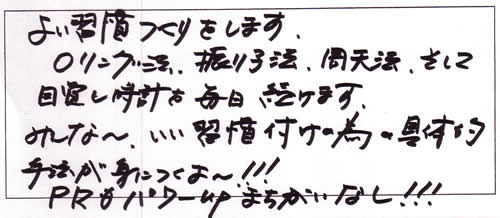 よい習慣つくりをします、
Oリング法、振り子法、周天法、そして
目覚し時計を毎日続けます、
みんな〜、いい習慣付けの為の具体的
手法が身につくよ〜!!!
PRもパワーupまちがいなし!!!